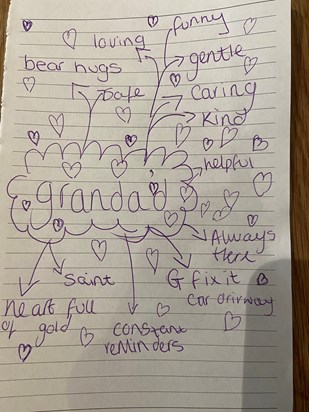 funny
loving
gentle
bear hugs
safe
caring
kind
helpful
grandad
Always
there
Saint
G fix it
car drirway
heart full
of gold
constant
reminders